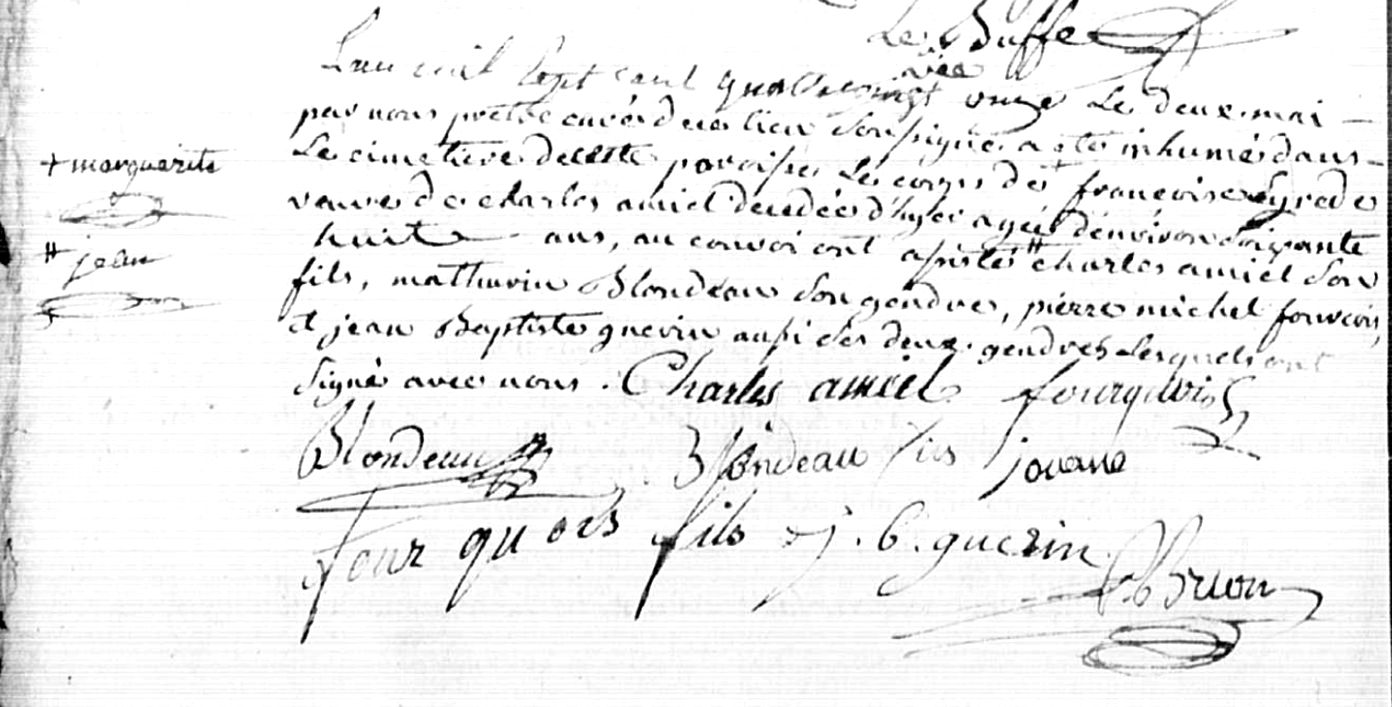 Le Buffe
vic
L'an mil sept cent quatrevingt onze Le deux mai
par nous prêtre curé de ce lieu soussigné a été inhumé dans
+ marguerite
Le cimetiere de cette paroisse Le corps de + françoise
veuve de charles amiel decedée d'hyer agée d'environ soixante
huit ans, au convoi ont assistés # charles amiel son
# jean
fils, mathurin Blondeau son gendre, pierre michel fourcois,
et jean Baptiste guerin aussi ses deux gendres Lesquels ont
signé avec nous . Charles amiel fourquois
Blondeau Blondeau fils jouane
fourquois fils j. b. guerin
Brion